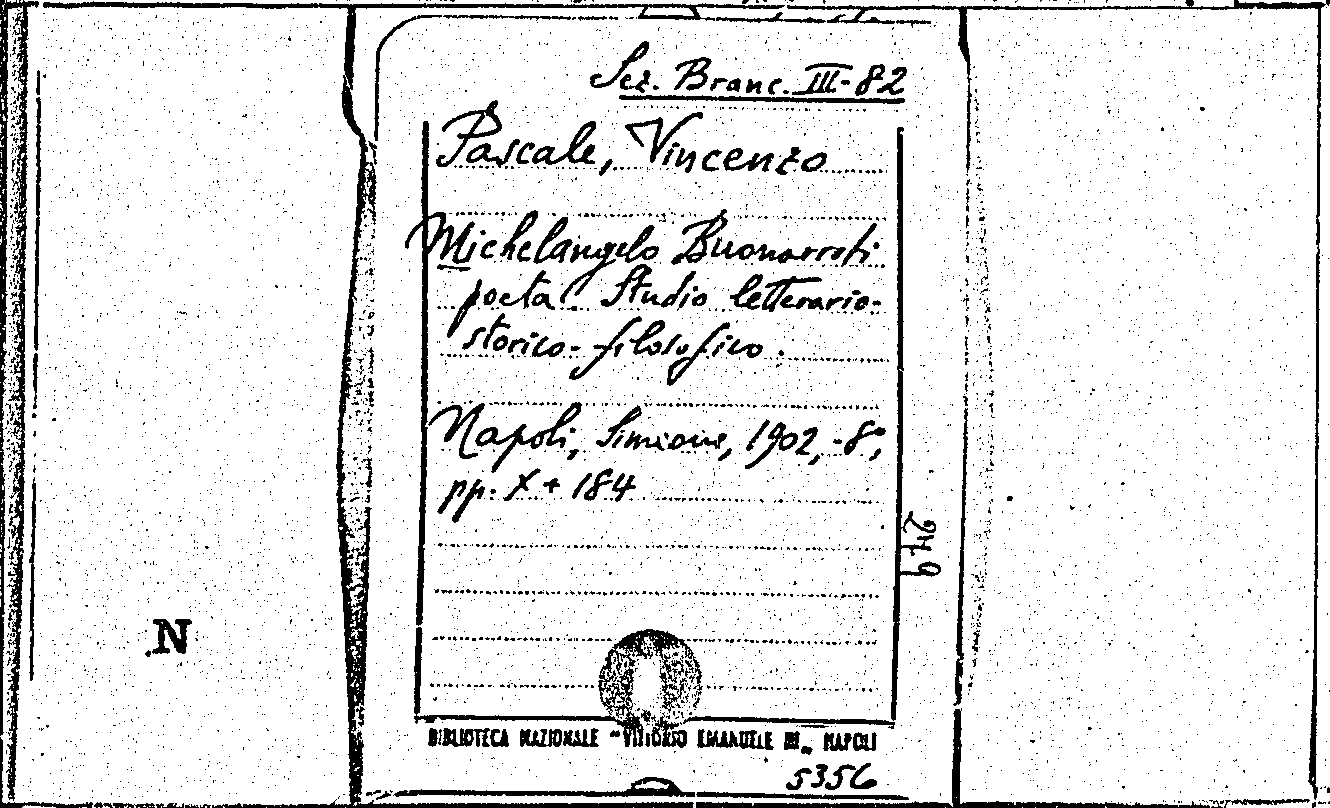 Sez. Branc. III-82
Pascale, Vincenzo
Michelangelo Buonarroti
poeta. Studio letterario-
storico-filosofico.
Napoli, Simeone, 1902, -8°,
pp. X + 184
249
N
BIBLIOTECA NAZIONALE "VITTORIO EMANUELE III„ NAPOLI
5356